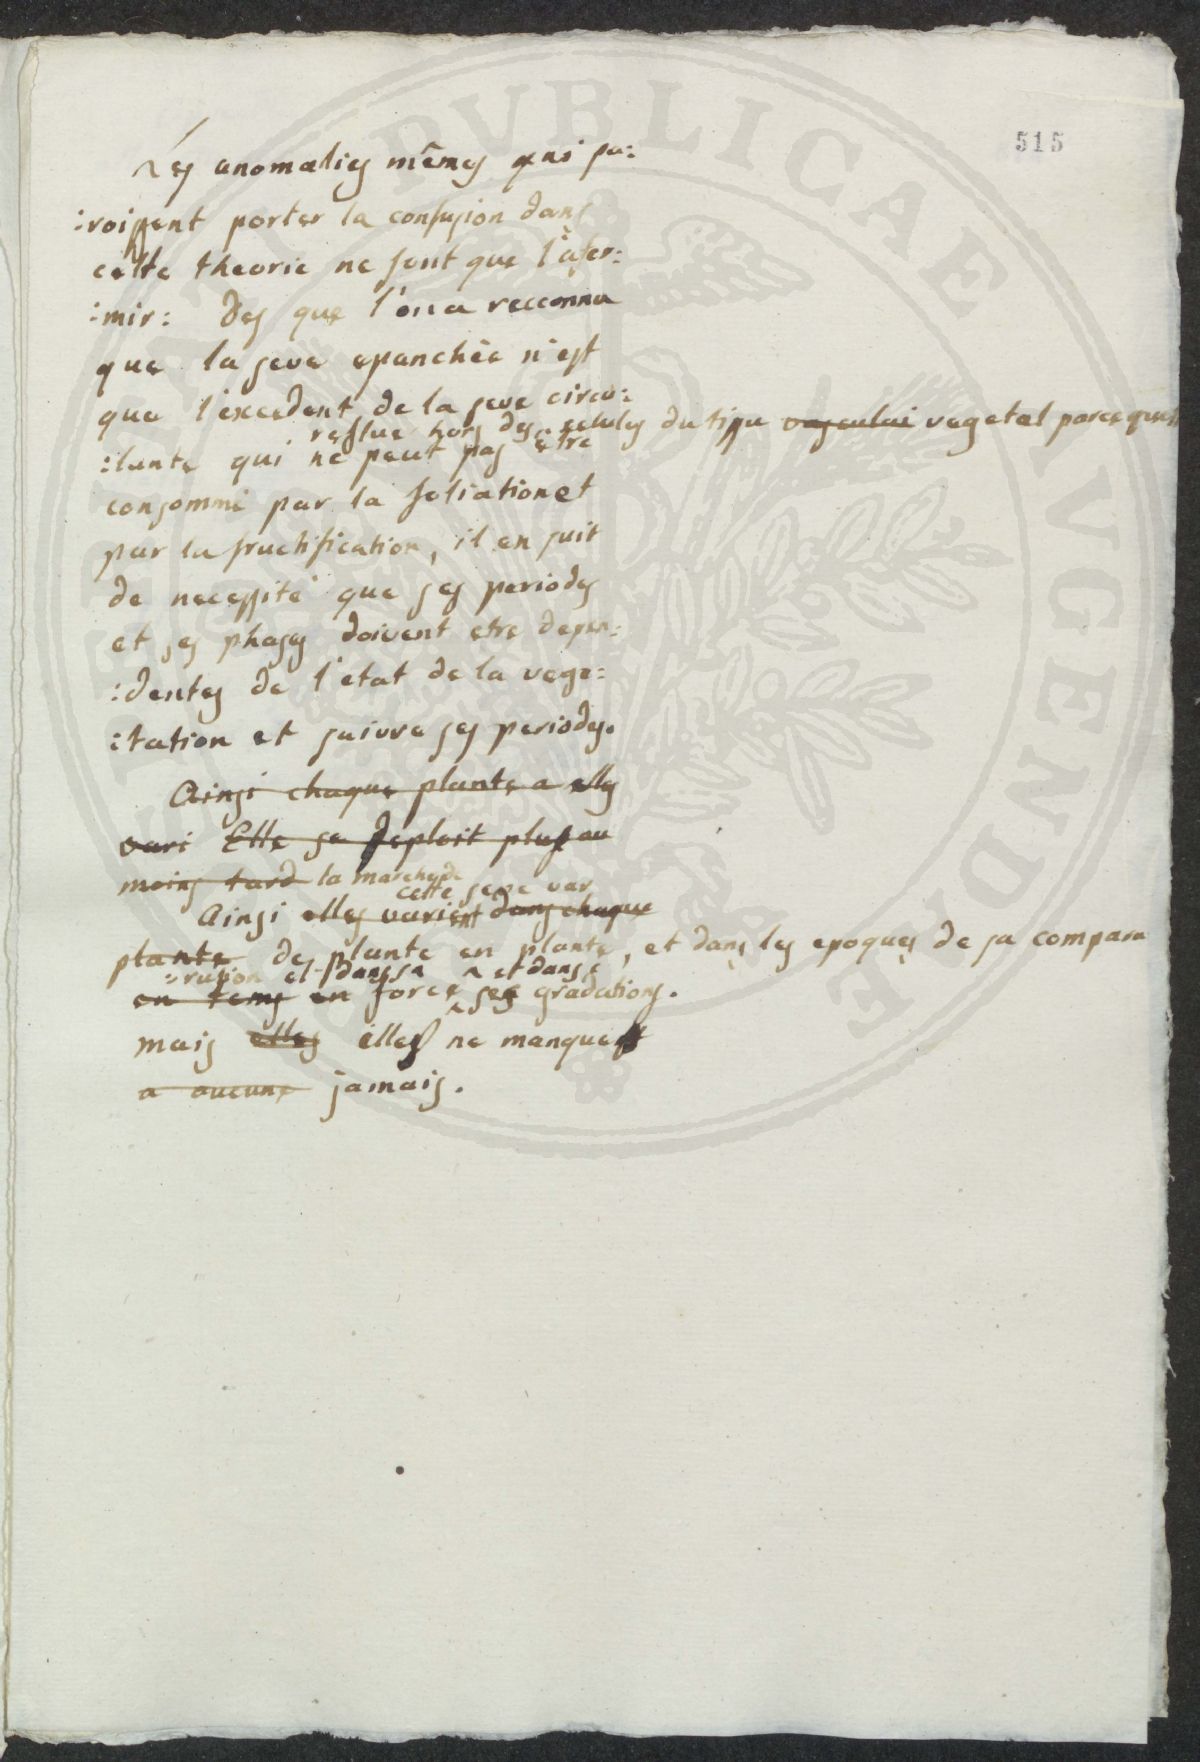 515
Les anomalies mêmes qui pa:
:roissent porter la confusion dans
cette theorie ne font que l'afer:
:mir: Des que l'on a recconnu
que la seve epanchée n'est
que l'excedent de la seve circu:
reflue hors des celules du tissu vasculai vegetal parcequ'
:lante qui ne peut pas être
consommé par la foliation et
par la fructification, il en suit
de necessité que ses periodes
et ses phases doivent etre depen:
:dentes de l'etat de la vege:
:tation et suivre ses periodes.
Ainsi chaque plante a elles
vari Elle se deploit plus au
moins tard la marche de
cette seve var
Ainsi elles varient dans chaque
plante des plante en plante, et dans les epoques de sa compara
:rution et dans sa et dans
en tems en force ses gradations.
mais elles elles ne manque
a aucune jamais.